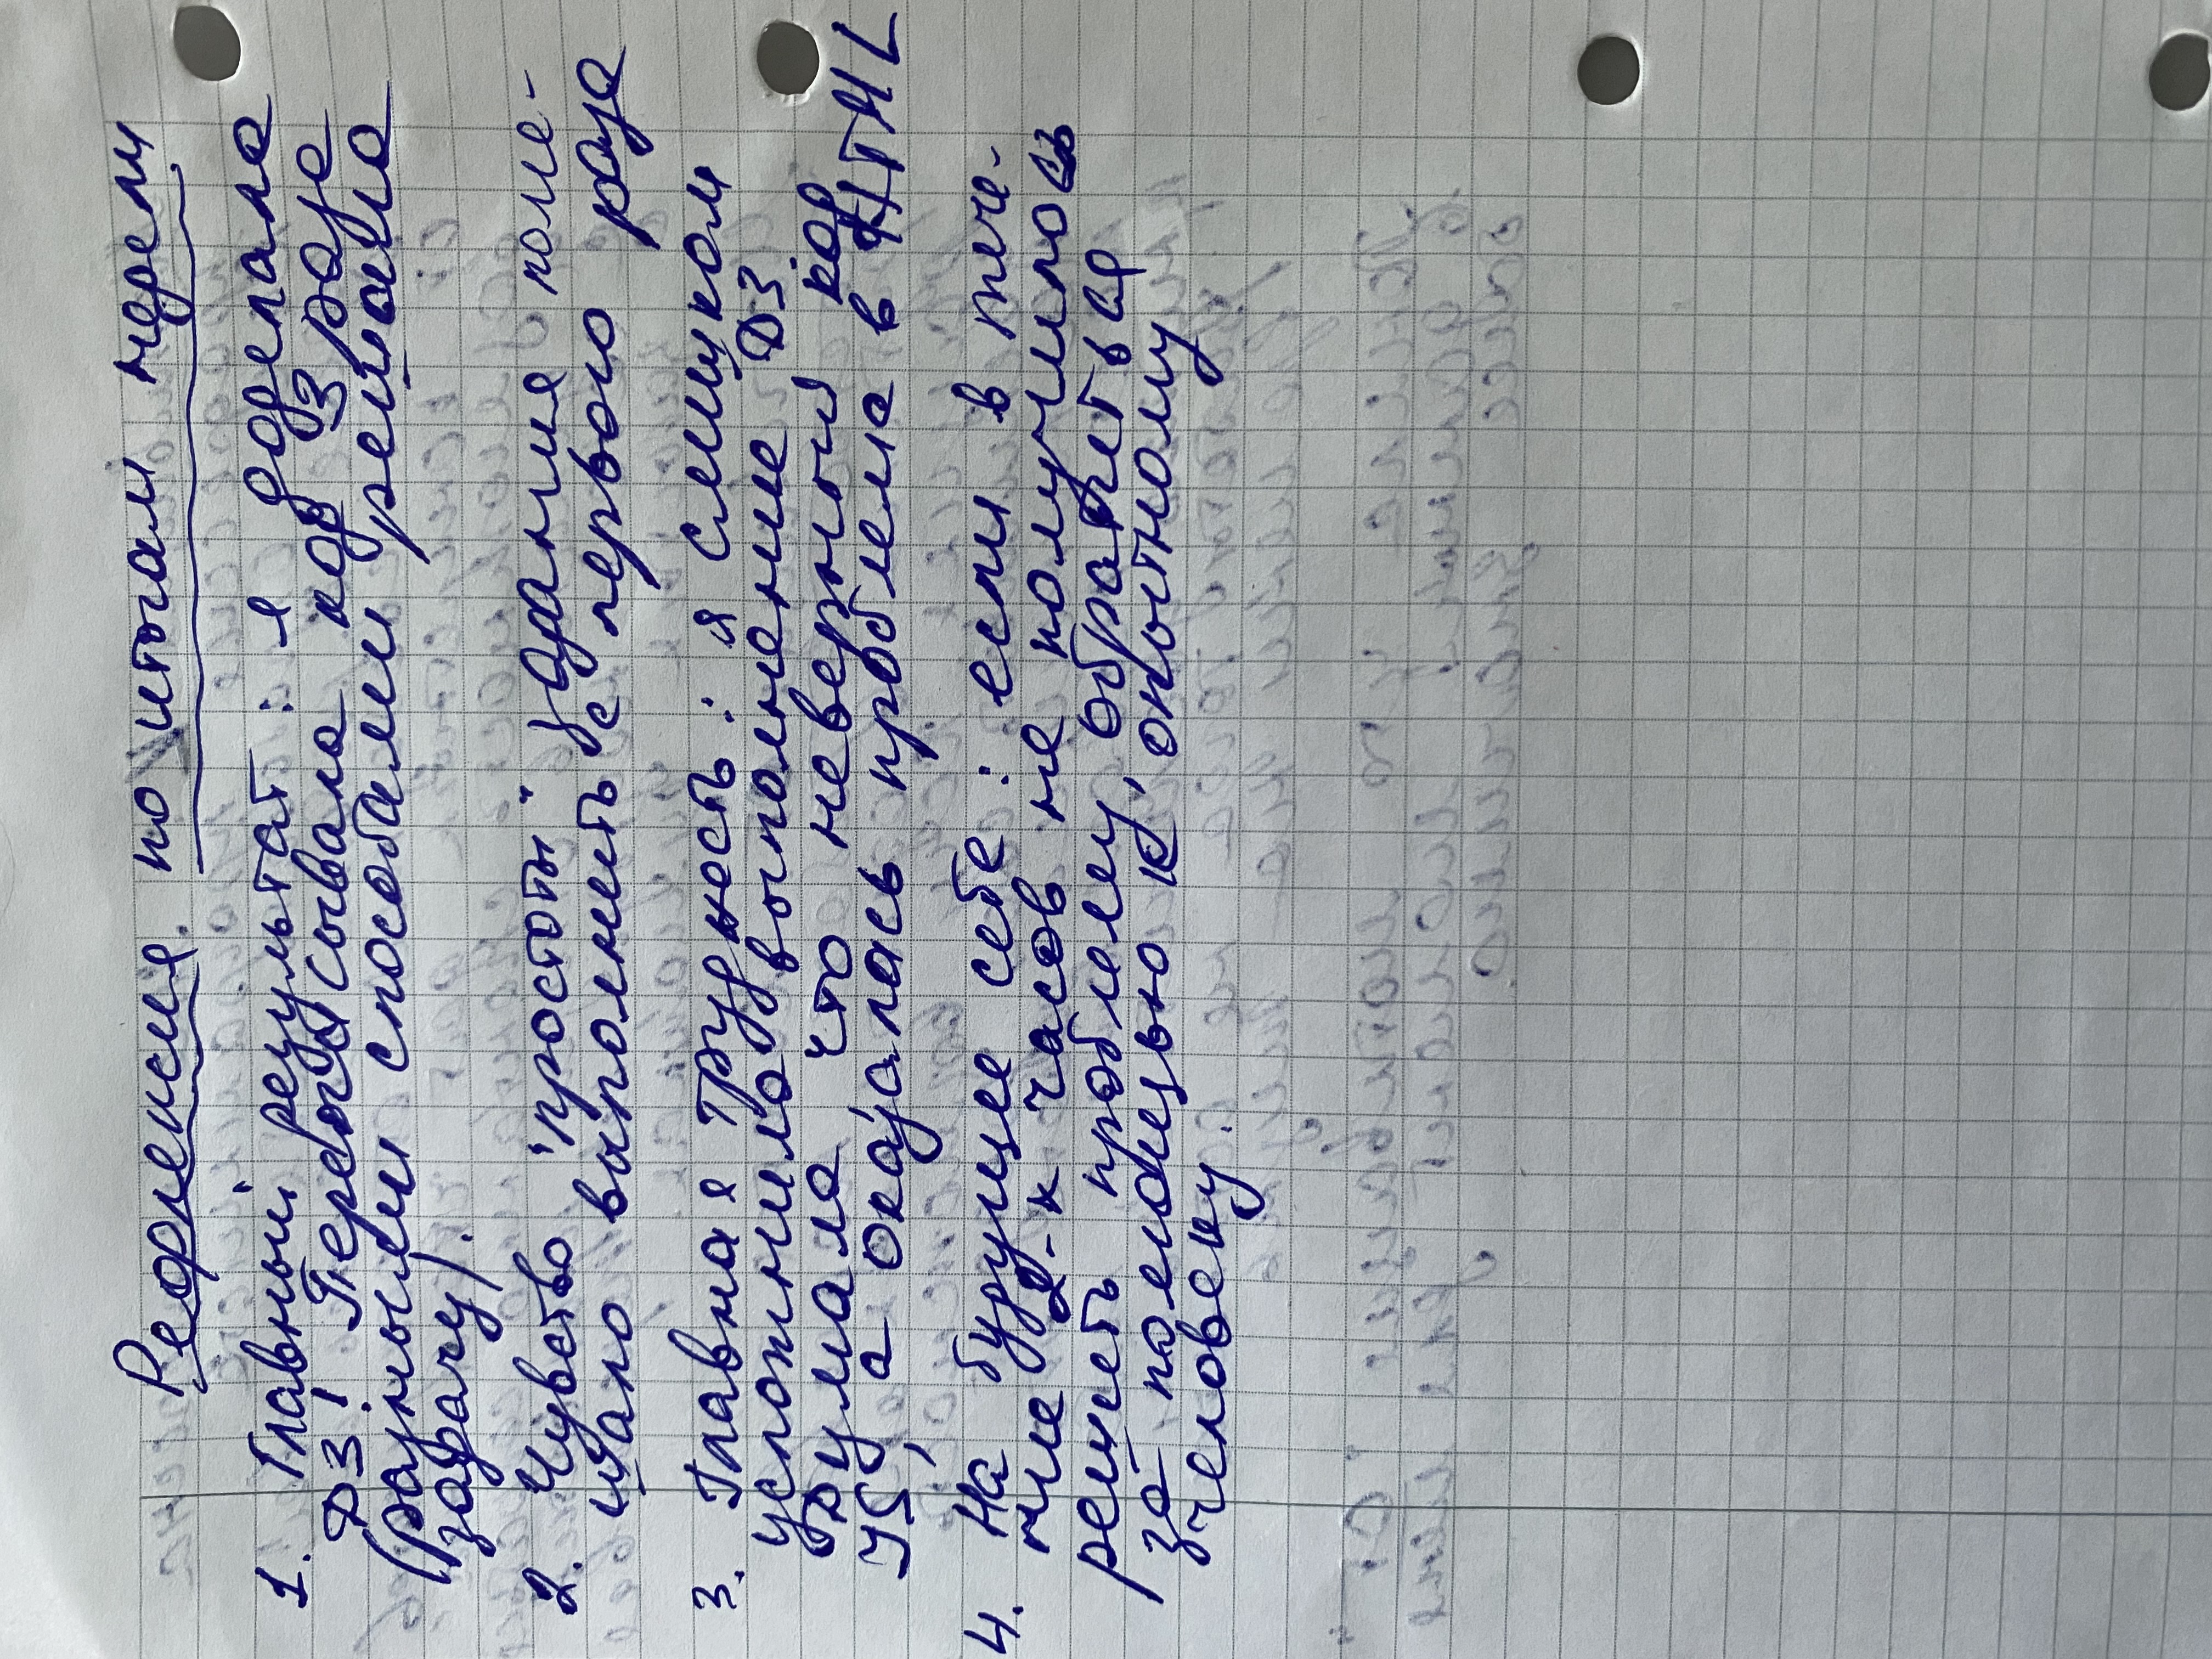 Рефлексия по итогам недели
1. Главный результат: я доделала
ДЗ! Переписывала код 3 раза
(разными способами решала
задачу).
2. Чувство "простоты" задания поме-
шало выполнить с первого раза
3. Главная трудность: я слишком
усложнила выполнение ДЗ.
Думала, что неверный код
JS, а оказалась проблема в HTML
4. На будущее себе: если в тече-
ние 2-х часов не получилось
решить проблему, обратиться
за помощью к опытному
человеку.